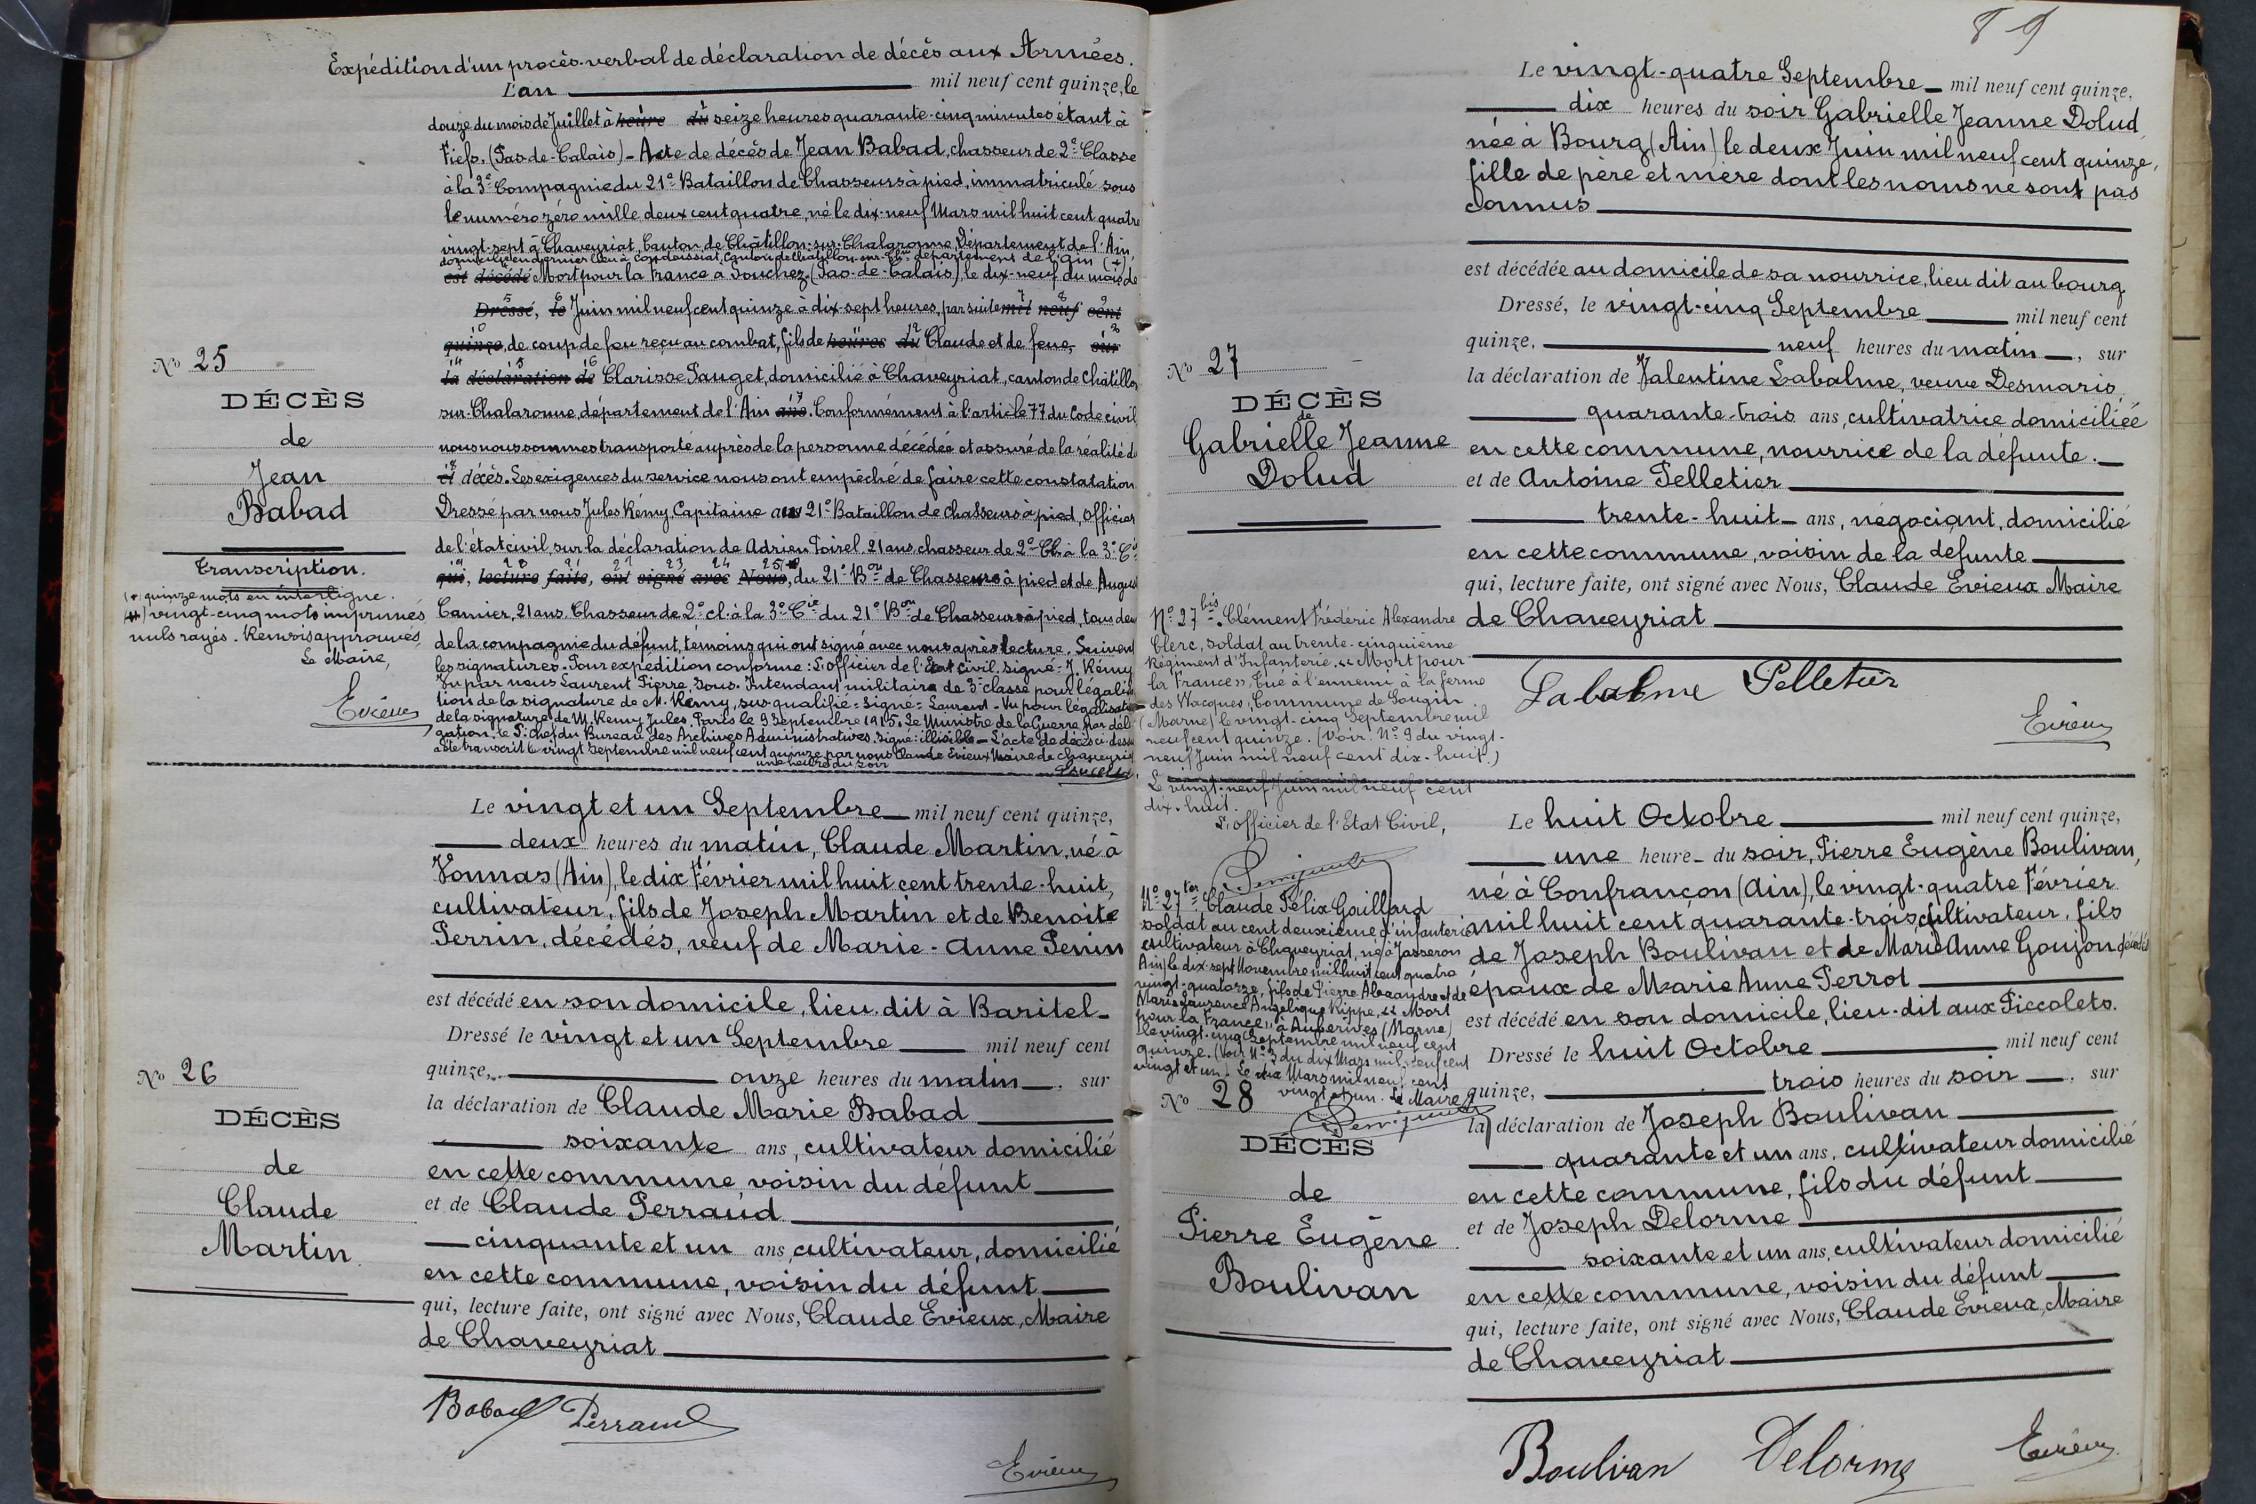 Expédition d'un procès-verbal de déclaration de décès aux Armées.
L'an mil neuf cent quinze, le
douze du mois de Juillet à heure du seize heures quarante-cinq minutes étant à
Fiefs. (Pas-de-Calais) - Acte de décès de Jean Babad, chasseur de 2e Classe
à la 3e Compagnie du 21e Bataillon de Chasseurs à pied, immatriculé sous
le numéro zéro mille deux cent quatre, né le dix-neuf Mars mil huit cent quatre
vingt-sept à Chaveyriat, Canton de Châtillon-sur-Chalaronne, Département de l'Ain,
domicilié en dernier lieu à Condeissiat, Canton de Châtillon-sur-Chne département de l'Ain (+)
est décédé Mort pour la France à Souchez (Pas-de-Calais), le dix-neuf du mois de
Dressé, le Juin mil neuf cent quinze à dix-sept heures, par suite mil neuf cent
quinze, de coup de feu reçu au combat, fils de heures du Claude et de feue, sur
la déclaration de Clarisse Pauget, domicilié à Chaveyriat, canton de Châtillon
sur-Chalaronne, département de l'Ain ans. Conformément à l'article 77 du Code civil,
nous nous sommes transporté auprès de la personne décédée et assuré de la réalité du
et décès. Les exigences du service nous ont empêché de faire cette constatation
Dressé par nous Jules Rémy, Capitaine au 21e Bataillon de Chasseurs à pied, Officier
de l'état civil, sur la déclaration de Adrien Poirel 21 ans chasseur de 2e Cl. à la 3e Cie
qui, lecture faite, ont signé avec Nous, du 21e Bon de Chasseurs à pied et de August
Camier, 21 ans. Chasseur de 2e cl. à la 3e Cie du 21e Bon de Chasseurs à pied, tous deux
de la compagnie du défunt, témoins qui ont signé avec nous après lecture. Suivent
les signatures. Pour expédition conforme : L'officier de l'Etat Civil. signé = J. Rémy
Vu par nous Laurent Pierre, Sous-Intendant militaire de 3e classe pour légalisa
tion de la signature de M. Rémy, sus-qualifié = Signé = Laurent - Vu pour légalisation
de la signature de M. Rémy Jules. Paris le 9 Septembre 1915. Le Ministre de la Guerre, Par délé
gation, le S. chef du Bureau des Archives Administratives. signé : illisible - L'acte de décès ci-dessus
a été transcrit le vingt Septembre mil neuf cent quinze par nous Claude Evieux Maire de Chaveyriat
une heure du soir
Evieux
No 25
DÉCÈS
de
Jean
Babad
Transcription.
(+) quinze mots en interligne.
vingt-cinq mots imprimés
nuls rayés. Renvois approuvés
Le Maire,
Evieux
Le vingt et un Septembre mil neuf cent quinze,
deux heures du matin, Claude Martin, né à
Vonnas (Ain), le dix Février mil huit cent trente-huit,
cultivateur, fils de Joseph Martin et de Benoite
Perrin, décédés, veuf de Marie-Anne Penin
est décédé en son domicile, lieu dit à Baritel
Dressé le vingt et un Septembre mil neuf cent
quinze, onze heures du matin, sur
la déclaration de Claude Marie Babad
soixante ans, cultivateur domicilié
en cette commune voisin du défunt
et de Claude Perraud
cinquante et un ans, cultivateur, domicilié
en cette commune, voisin du défunt
qui, lecture faite, ont signé avec Nous, Claude Evieux, Maire
de Chaveyriat
Babad Perraud
Evieux
No 26
DÉCÈS
de
Claude
Martin
89
Le vingt-quatre Septembre mil neuf cent quinze,
dix heures du soir Gabrielle Jeanne Dolud
née à Bourg (Ain) le deux Juin mil neuf cent quinze,
fille de père et mère dont les noms ne sont pas
connus
est décédée au domicile de sa nourrice, lieu dit au bourg
Dressé, le vingt-cinq Septembre mil neuf cent
quinze, neuf heures du matin, sur
la déclaration de Valentine Labalme, veuve Desmaris,
quarante-trois ans, cultivatrice domiciliée
en cette commune, nourrice de la défunte.
et de Antoine Pelletier
trente-huit ans, négociant, domicilié
en cette commune, voisin de la défunte
qui, lecture faite, ont signé avec Nous, Claude Evieux Maire
de Chaveyriat
Labalme Pelletier
Evieux
No 27
DÉCÈS
de
Gabrielle Jeanne
Dolud
No 27 bis. Clément Frédéric Alexandre
Clerc, soldat au trente-cinquième
Régiment d'Infanterie, "Mort pour
la France", Tué à l'ennemi à la ferme
des Wacques, Commune de Souain
(Marne) le vingt-cinq Septembre mil
neuf cent quinze. (Voir No 9 du vingt-
neuf Juin mil neuf cent dix-huit.)
Le vingt-neuf Juin mil neuf cent
dix-huit.
L'officier de l'Etat Civil,
No 27 ter Claude Félix Gaillard
soldat au cent deuxième d'infanterie
cultivateur à Chaveyriat, né à Jasseron
Ain) le dix-sept Novembre mil huit cent quatre
vingt-quatorze, fils de Pierre Alexandre et de
Marie Laurence Angélique Nippe, "Mort
pour la France" à Auberives (Marne)
le vingt-cinq Septembre mil neuf cent
quinze. (Voir No 3 du dix Mars mil neuf cent
vingt et un. Le dix Mars mil neuf cent
vingt et un. Le Maire
Le huit Octobre mil neuf cent quinze,
une heure du soir, Pierre Eugène Boulivan,
né à Confrançon (Ain), le vingt-quatre Février
mil huit cent quarante-trois, cultivateur, fils
de Joseph Boulivan et de Marie Anne Goujon décédés
époux de Marie Anne Perrot
est décédé en son domicile, lieu-dit aux Piccolets.
Dressé le huit Octobre mil neuf cent
quinze, trois heures du soir, sur
la déclaration de Joseph Boulivan
quarante et un ans, cultivateur domicilié
en cette commune, fils du défunt
et de Joseph Delorme
soixante et un ans, cultivateur domicilié
en cette commune, voisin du défunt
qui, lecture faite, ont signé avec Nous, Claude Evieux, Maire
de Chaveyriat
Boulivan Delorme Evieux
No 28
DÉCÈS
de
Pierre Eugène
Boulivan